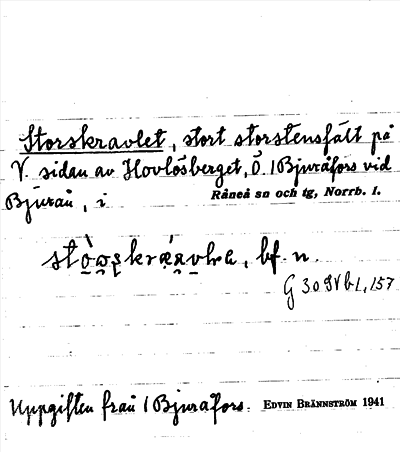 Storskravlet, stort storstensfält på
V. sidan av Hovlösberget, Ö. / Bjuråfors vid
Råneå sn och tg, Norrb. l.
Bjurån, i
bf. n.
G 30 9Vb1, 157
Uppgiften från / Bjuråfors. EDVIN BRÄNNSTRÖM 1941